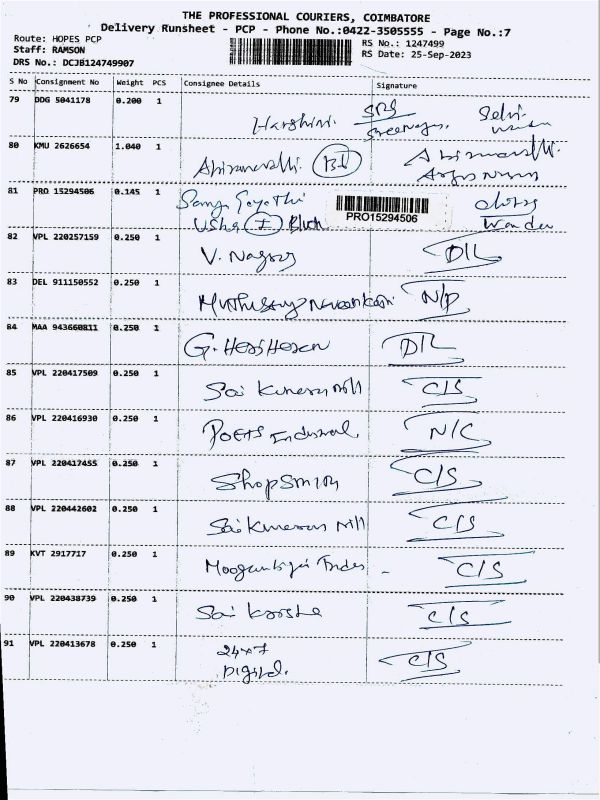 THE PROFESSIONAL COURIERS, COIMBATORE
Delivery Runsheet - PCP - Phone No.:0422-3505555 - Page No.:7
Route: HOPES PCP
RS No.: 1247499
Staff: RAMSON
RS Date: 25-Sep-2023
DRS No.: DCJB124749907
S No Consignment No Weight PCS Consignee Details Signature
79 DDG 5041178 0.200 1
Harshini. SRS Selvi
80 KMU 2626654 1.040 1
81 PRO 15294506 0.145 1
PRO15294506
82 VPL 220257159 0.250 1
V. Nagraj D/L
83 DEL 911150552 0.250 1
N/P
84 MAA 943660811 0.250 1
D/L
85 VPL 220417509 0.250 1
Sai Kumaran Mill C/S
86 VPL 220416930 0.250 1
Poets Industrial N/C
87 VPL 220417455 0.250 1
Shopsmith C/S
88 VPL 220442602 0.250 1
Sai Kumaran Mill C/S
89 KVT 2917717 0.250 1
C/S
90 VPL 220438739 0.250 1
Sai C/S
91 VPL 220413678 0.250 1
24x7 C/S
Digital.